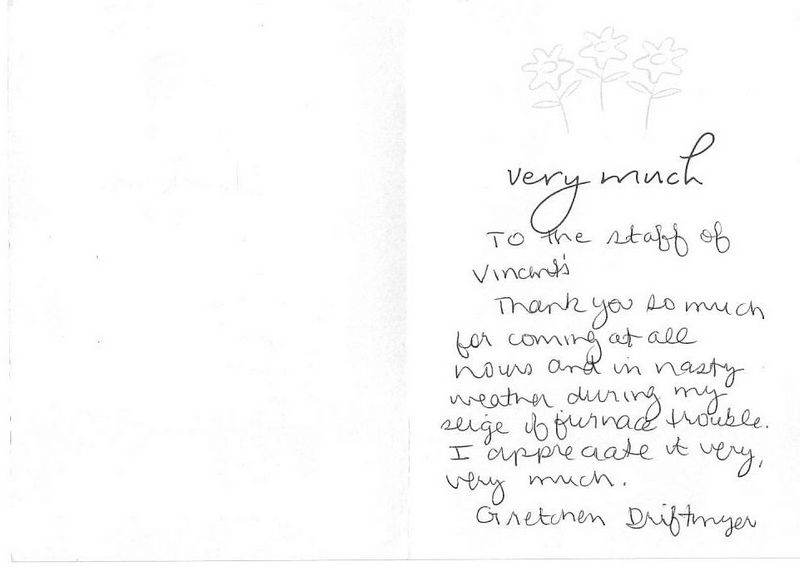 very much
To the staff of
Vincent's
Thank you so much
for coming at all
hours and in nasty
weather during my
seige of furnace trouble.
I appreciate it very,
very much.
Gretchen Driftmyer